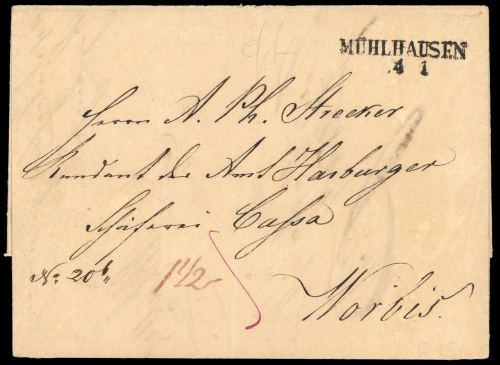 MÜHLHAUSEN
4 1
Herrn A. Ph. Strecker
Rendant der Amt Harburger
Schäferei Cassa
No 20b
1 1/2
Worbis.